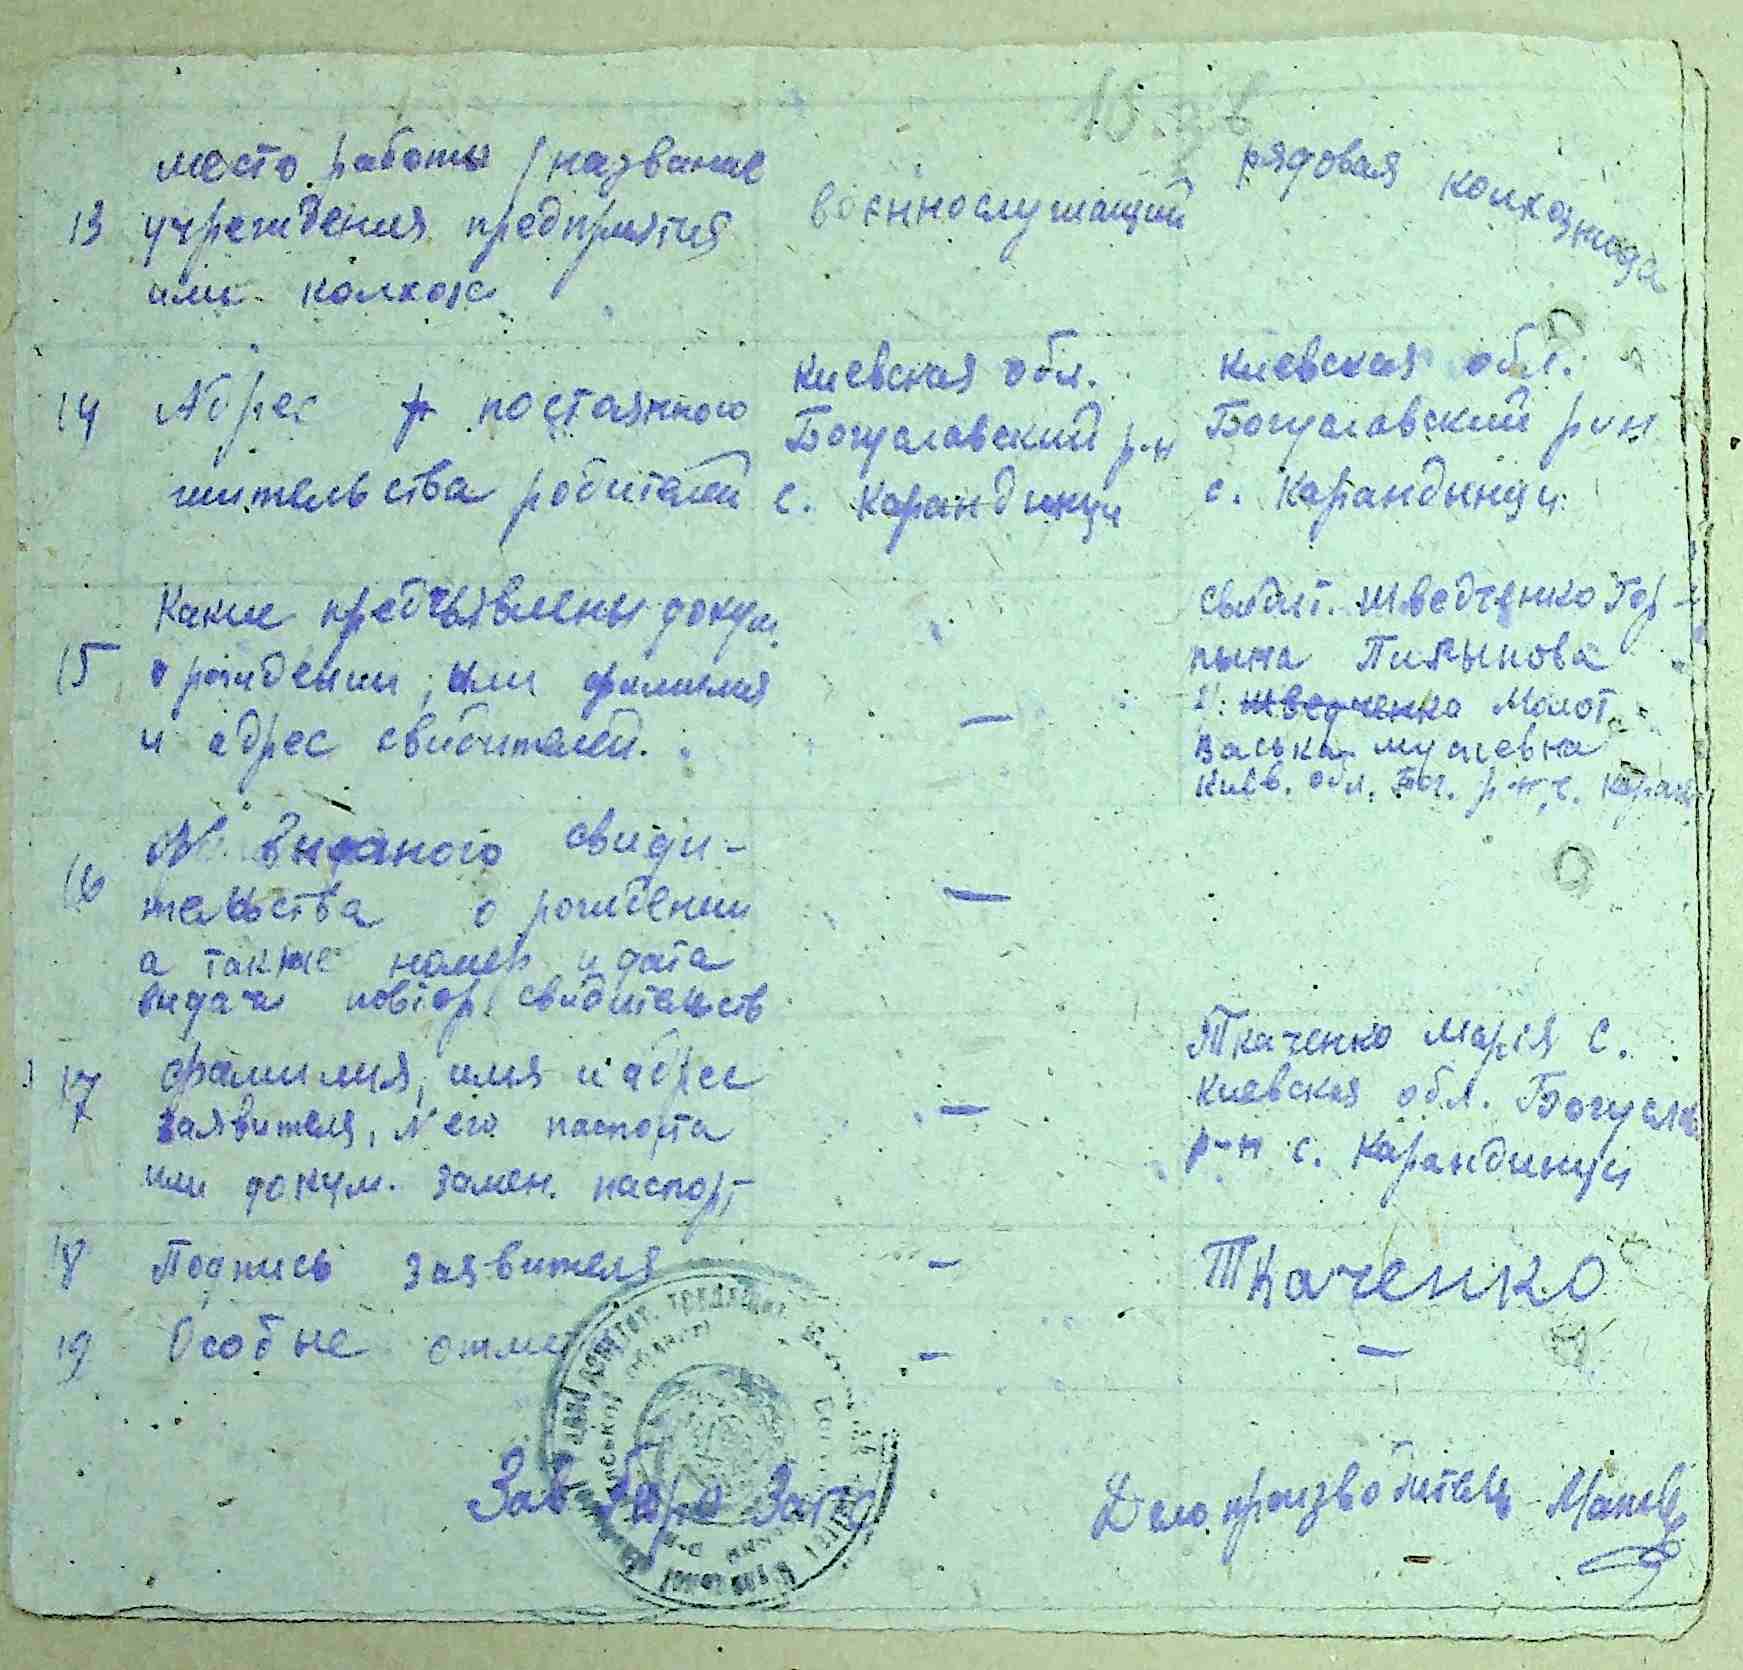 место работы /название
13 учреждения предприятия
или колхоза
военнослужащий
рядовая колхозница
14 Адрес постоянного
жительства робителей
Киевская обл.
Богуславский р-н
с. Карандинци
Киевская обл.
Богуславский р-н
с. Карандынци
15 Какие предъявлены докум.
о рождении, или фамилия
и адрес свидителей.
—
свидит. Шведченко Гор-
пына
2. Шведченко Молот
Васька
Киев. обл. Бог. р-н, с. Каран
16 выданого свиди-
тельства о рождении
а также номер и дата
выдачи повтор. свидительств
—
17 фамилия, имя и адрес
заявителя, № его паспорта
или докум. замен. паспорт
—
Ткаченко Марія С.
Киевская обл. Богуслав
р-н с. Карандинци
18 Подпись заявителя
-
Ткаченко
19 Особые отмет
-
—
Зав бюро Загс
Делопроизводитель